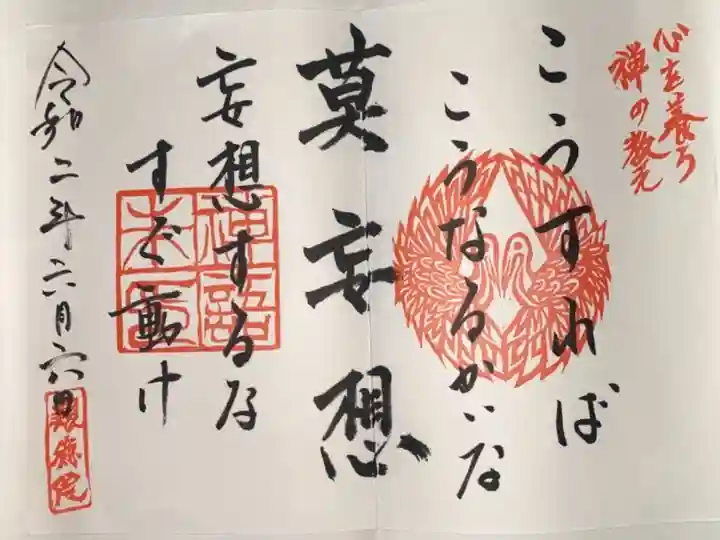 心を養う
禅の教え
こうすれば
こうなるかいな
莫妄想
妄想するな
すぐ動け
令和二年六月六日
禅語